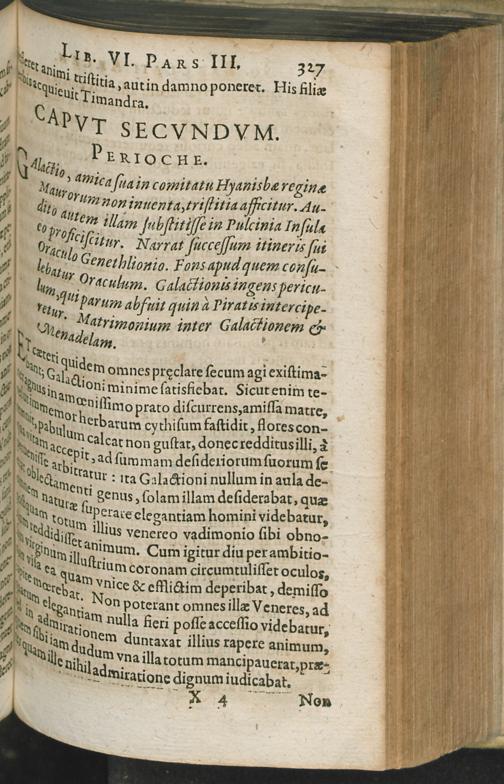 LIB. VI. PARS III. 327
animi tristitia, aut in damno poneret. His filiæ
acquieuit Timandra.
CAPVT SECVNDVM.
PERIOCHE.
GAlactio, amica sua in comitatu Hyanisbæ reginæ
Maurorum non inuenta, tristitia afficitur. Au-
dito autem illam substitisse in Pulcinia Insula
eo proficiscitur. Narrat successum itineris sui
Oraculo Genethlionio. Fons apud quem consu-
lebatur Oraculum. Galactionis ingens pericu-
lum, qui parum abfuit quin à Piratis intercipe-
retur. Matrimonium inter Galactionem &
Menadelam.
ET cæteri quidem omnes pręclare secum agi existima-
bant; Galactioni minime satisfiebat. Sicut enim te-
agnus in amœnissimo prato discurrens, amissa matre,
immemor herbarum cythisum fastidit, flores con-
pabulum calcat non gustat, donec redditus illi, à
vitam accepit, ad summam desideriorum suorum se
arbitratur: ita Galactioni nullum in aula de-
oblectamenti genus, solam illam desiderabat, quæ
naturæ superare elegantiam homini videbatur,
totum illius venereo vadimonio sibi obno-
reddidisset animum. Cum igitur diu per ambitio-
virginum illustrium coronam circumtulisset oculos,
visa ea quam vnice & efflictim deperibat, demisso
mœrebat. Non poterant omnes illæ Veneres, ad
elegantiam nulla fieri posse accessio videbatur,
in admirationem duntaxat illius rapere animum,
sibi iam dudum vna illa totum mancipauerat, præ-
quam ille nihil admiratione dignum iudicabat.
X 4 Non